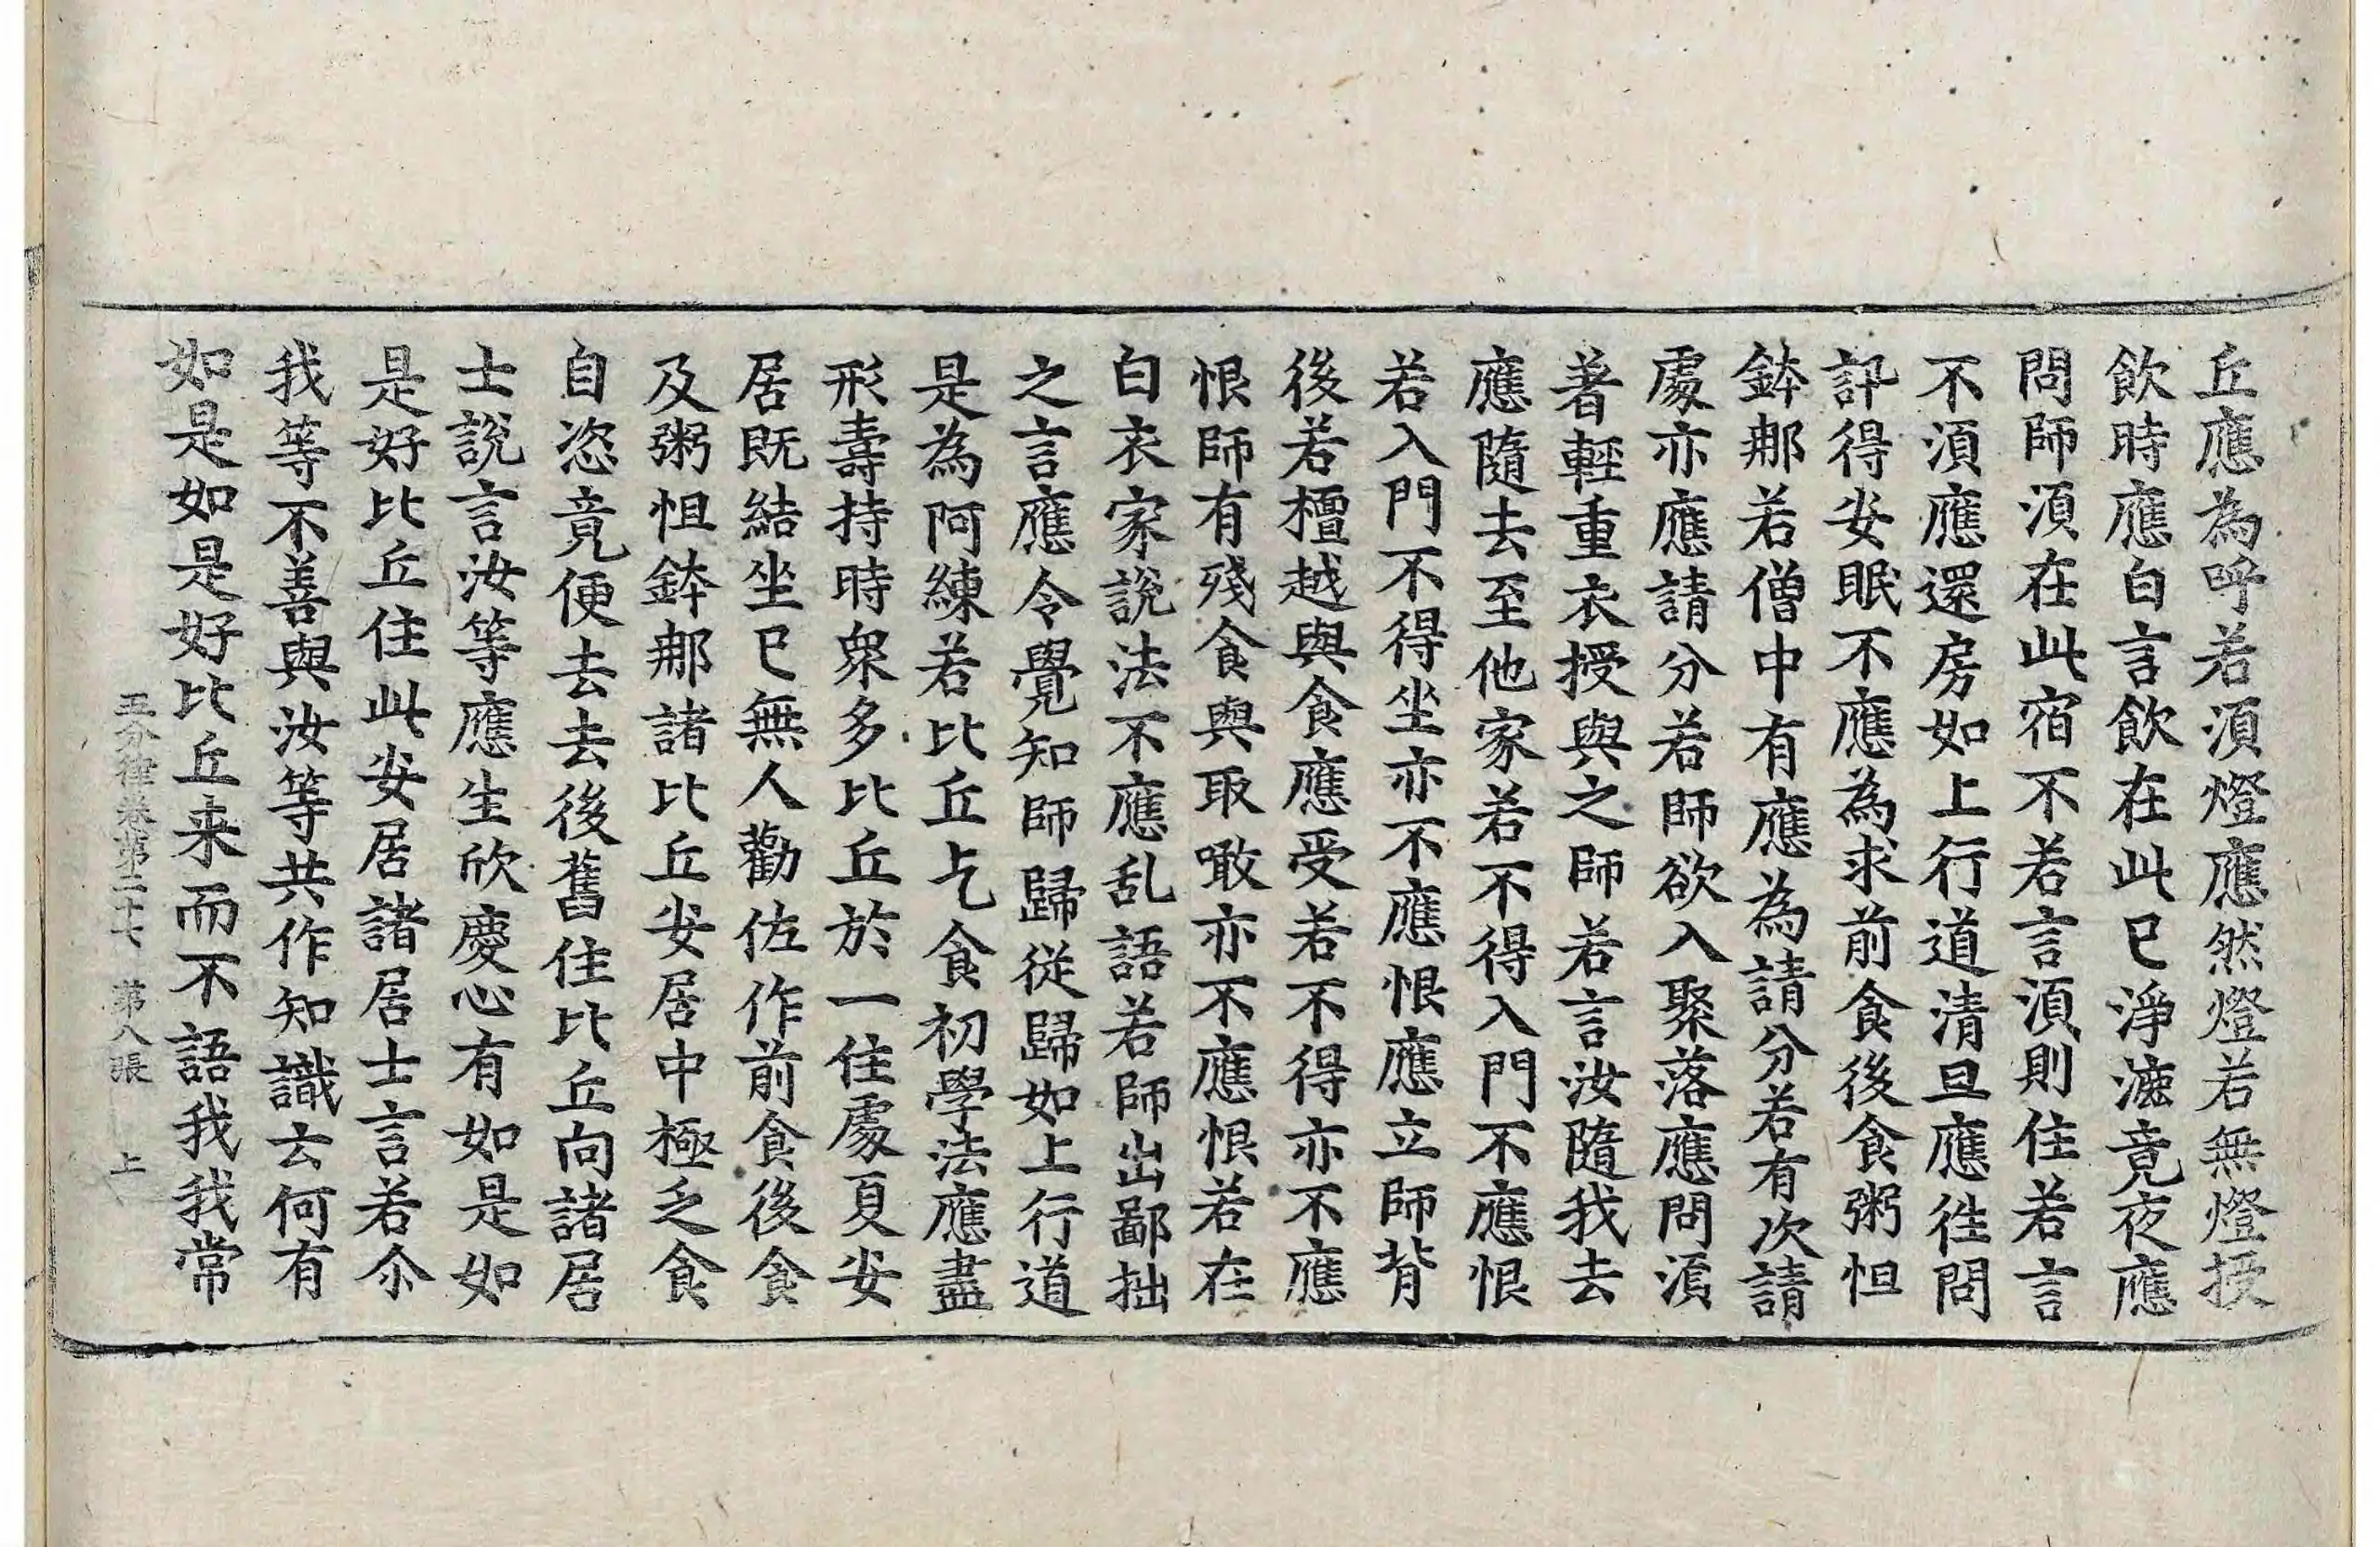 丘應為呼若須燈應然燈若無燈授
飲時應白言飲在此已淨漉竟夜應
問師須在此宿不若言須則住若言
不須應還房如上行道清旦應往問
訊得安眠不應為求前食後食粥怛
鉢郍若僧中有應為請分若有次請
處亦應請分若師欲入聚落應問須
著輕重衣授與之師若言汝隨我去
應隨去至他家若不得入門不應恨
若入門不得坐亦不應恨應立師背
後若檀越與食應受若不得亦不應
恨師有殘食與取噉亦不應恨若在
白衣家說法不應乱語若師出鄙拙
之言應令覺知師歸從歸如上行道
是為阿練若比丘乞食初學法應盡
形壽持時衆多比丘於一住處夏安
居既結坐已無人勸佐作前食後食
及粥怛鉢郍諸比丘安居中極乏食
自恣竟便去去後舊住比丘向諸居
士說言汝等應生欣慶心有如是如
是好比丘住此安居諸居士言若尒
我等不善與汝等共作知識云何有
如是如是好比丘来而不語我我常
五分律卷第二十七 第八張 上